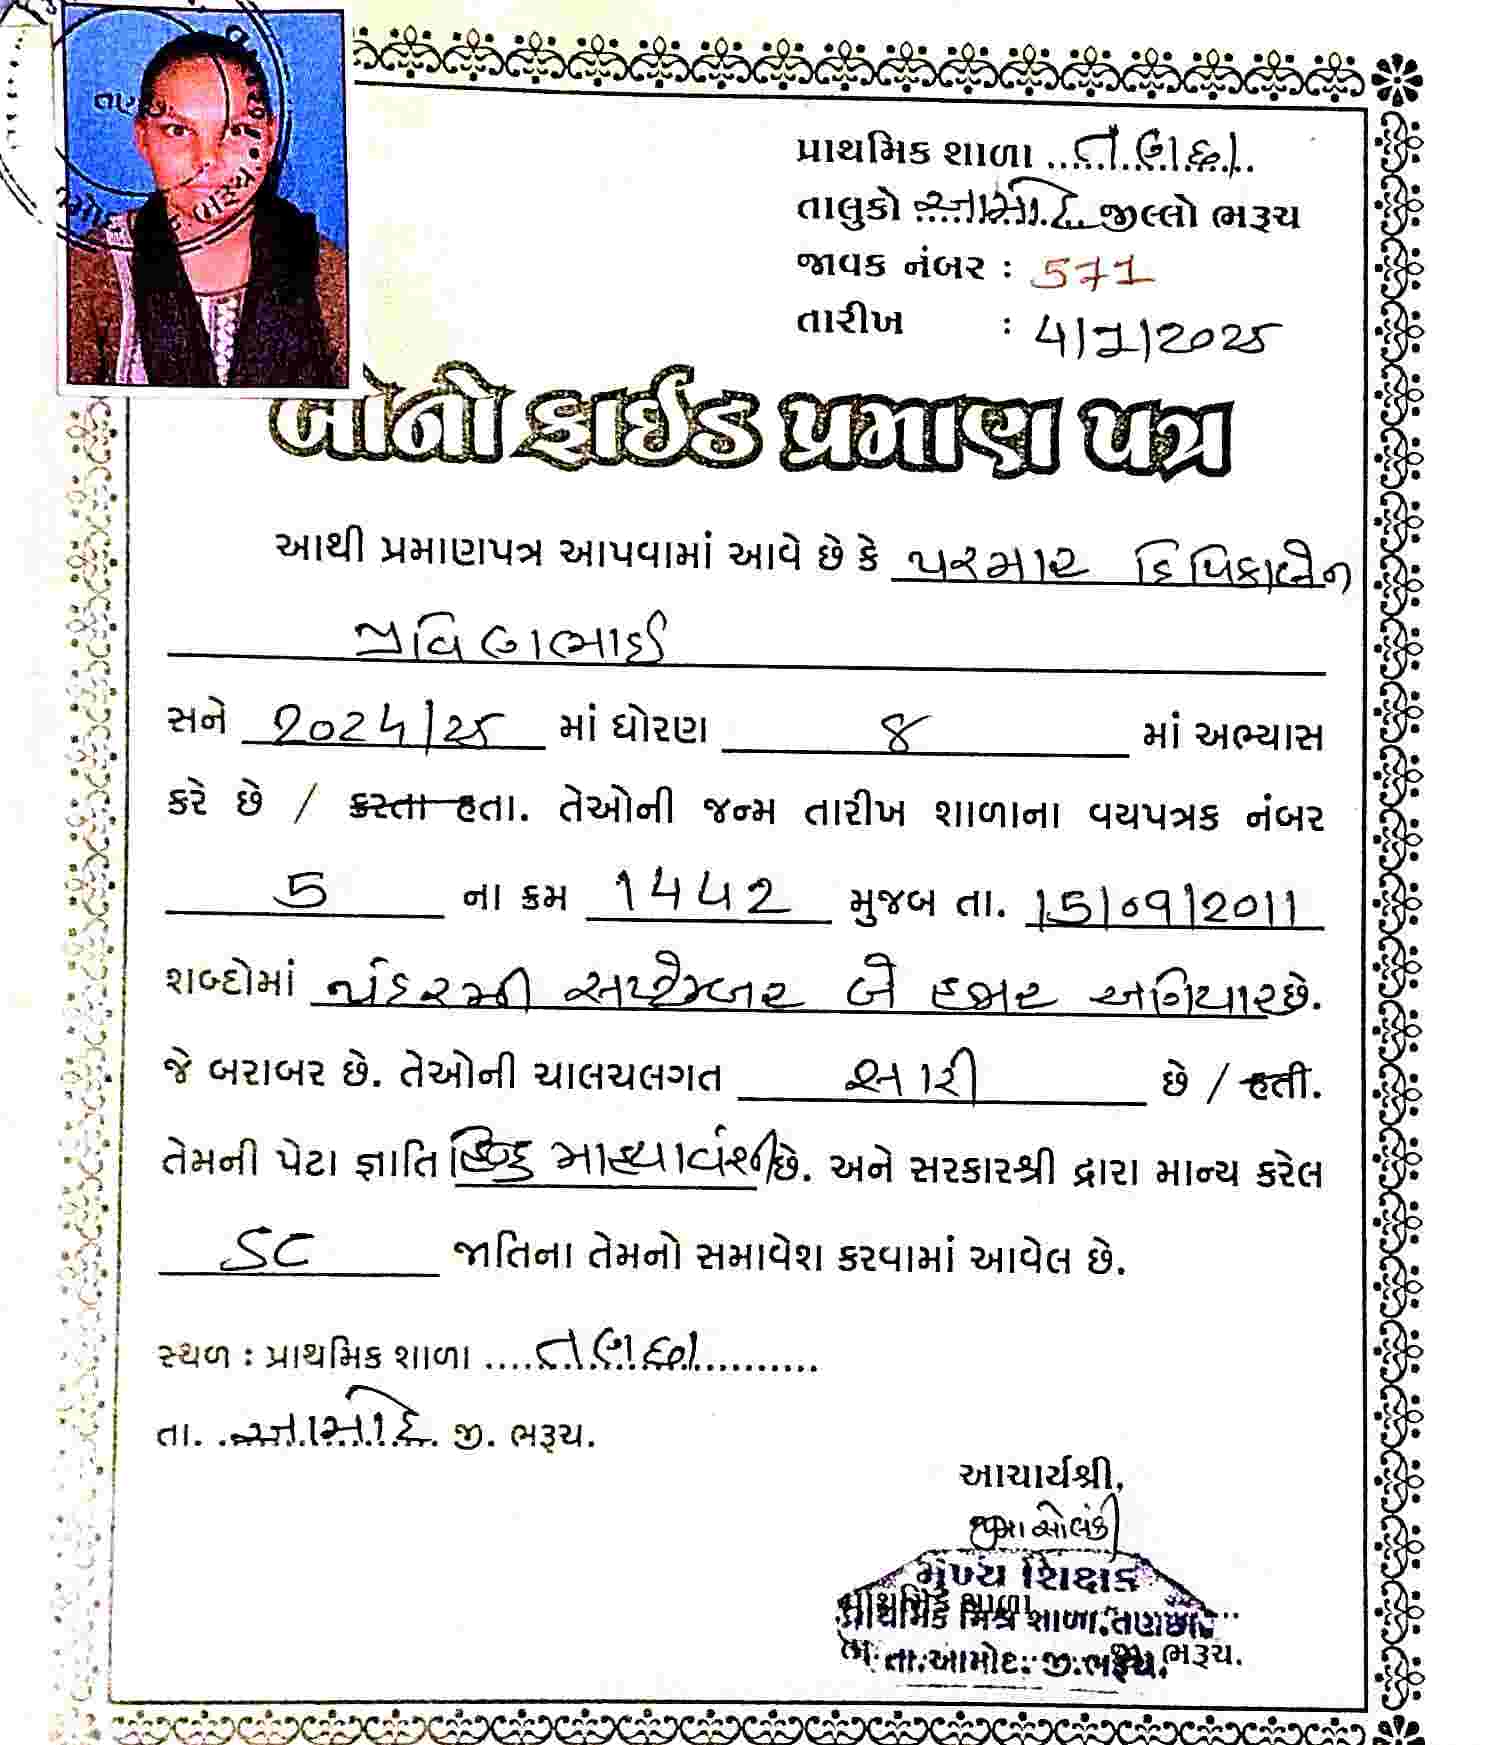 પ્રાથમિક શાળા તણછા
તાલુકો આમોદ જીલ્લો ભરૂચ
જાવક નંબર : 571
તારીખ : 4/7/2025
બોનો ફાઈડ પ્રમાણ પત્ર
આથી પ્રમાણપત્ર આપવામાં આવે છે કે પરમાર દિપિકાબેન
પ્રવિણભાઈ
સને 2024/25 માં ધોરણ 8 માં અભ્યાસ
કરે છે / કરતા હતા. તેઓની જન્મ તારીખ શાળાના વયપત્રક નંબર
5 ના ક્રમ 1442 મુજબ તા. 15/09/2011
શબ્દોમાં પંદરમી સપ્ટેમ્બર બે હજાર અગિયાર છે.
જે બરાબર છે. તેઓની ચાલચલગત સારી છે / હતી.
તેમની પેટા જ્ઞાતિ હિન્દુ માહ્યાવંશી છે. અને સરકારશ્રી દ્વારા માન્ય કરેલ
SC જાતિના તેમનો સમાવેશ કરવામાં આવેલ છે.
સ્થળ : પ્રાથમિક શાળા તણછા
તા. આમોદ જી. ભરૂચ.
આચાર્યશ્રી,
મુખ્ય શિક્ષક
પ્રાથમિક શાળા
પ્રાથમિક મિશ્ર શાળા, તણછા
તા. આમોદ. જી. ભરૂચ.
જી. ભરૂચ.